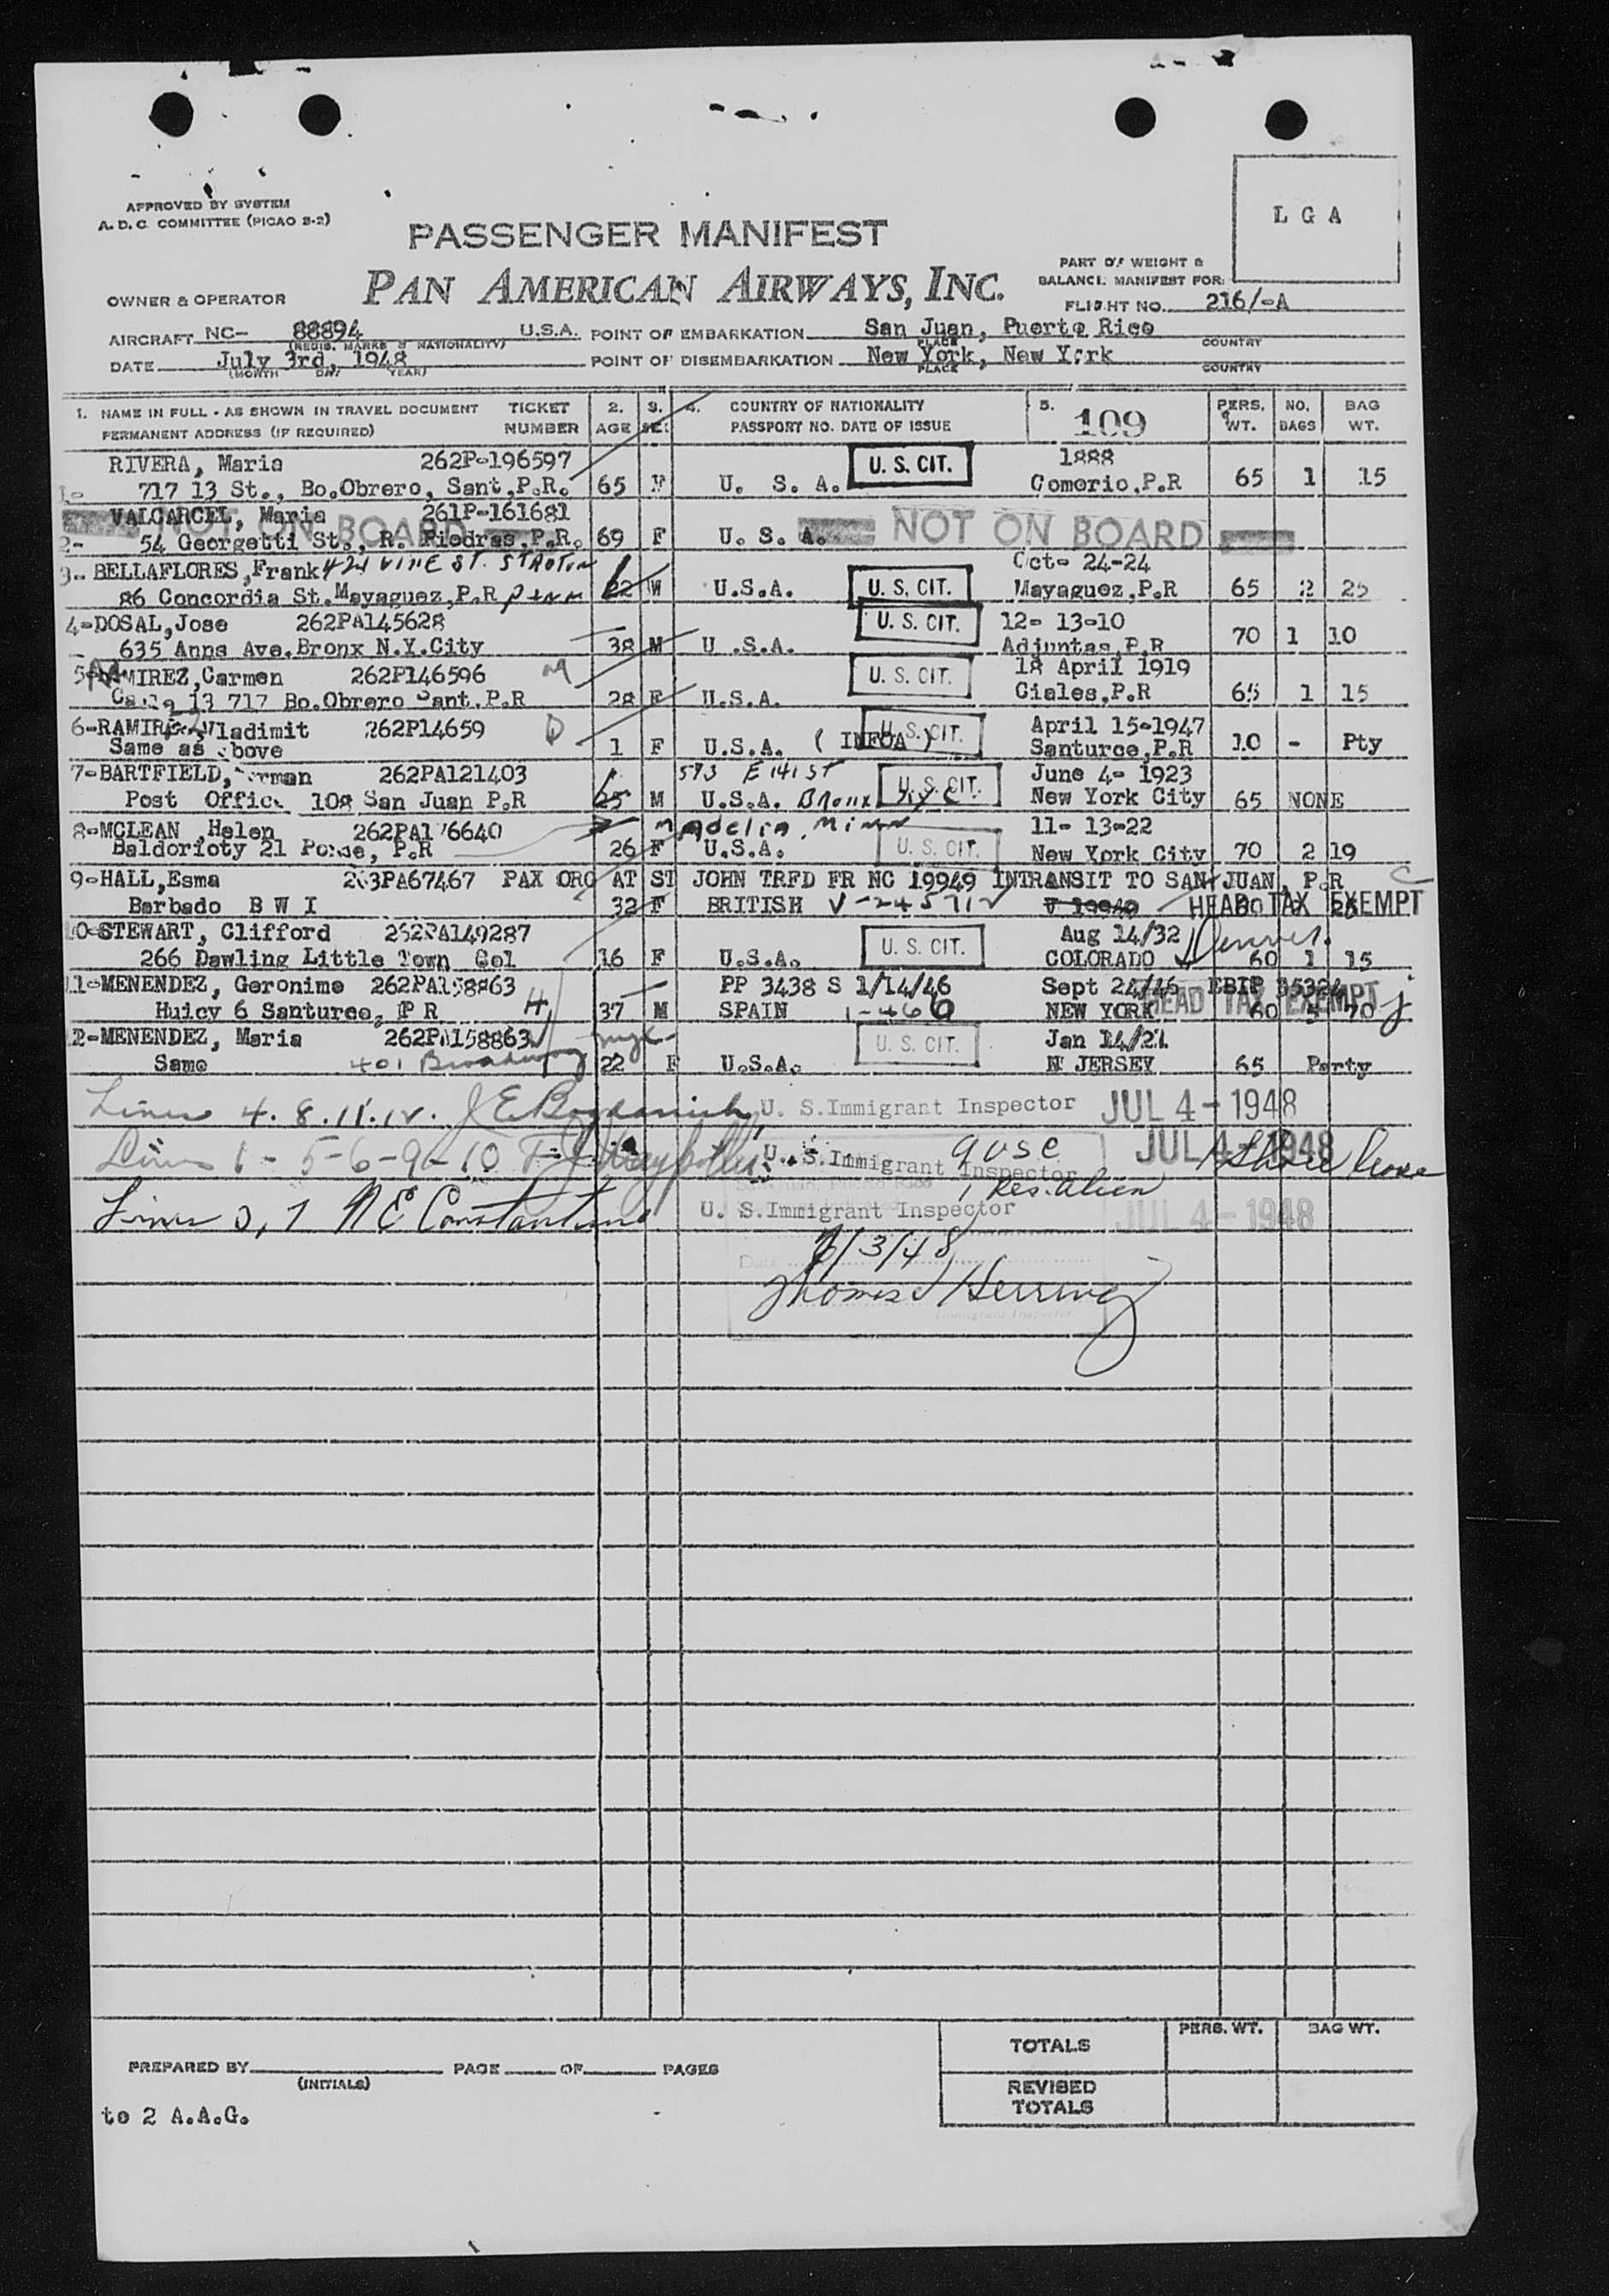 APPROVED BY SYSTEM
A. D. C. COMMITTEE (PICAO S-2)
L G A
PASSENGER MANIFEST
PAN AMERICAN AIRWAYS, INC.
PART OF WEIGHT &
BALANCE MANIFEST FOR:
OWNER & OPERATOR
FLIGHT NO. 216/-A
AIRCRAFT NC- 88894 U.S.A. POINT OF EMBARKATION San Juan, Puerto Rico
(REGIS. MARKS & NATIONALITY) PLACE COUNTRY
DATE July 3rd, 1948 POINT OF DISEMBARKATION New York, New York
(MONTH DAY YEAR) PLACE COUNTRY
1. NAME IN FULL - AS SHOWN IN TRAVEL DOCUMENT TICKET 2. 3. 4. COUNTRY OF NATIONALITY 5. 109 PERS. NO. BAG
PERMANENT ADDRESS (IF REQUIRED) NUMBER AGE SEX PASSPORT NO. DATE OF ISSUE WT. BAGS WT.
RIVERA, Maria 262P-196597 U. S. CIT. 1888
1- 717 13 St., Bo.Obrero, Sant.P.R. 65 F U. S. A. Comerio,P.R 65 1 15
VALCARCEL, Maria 261P-161681 NOT ON BOARD
2- 54 Georgetti St., R. Piedras,P.R. 69 F U. S. A. NOT ON BOARD
3- BELLAFLORES,Frank 424 VINE ST. Oct- 24-24
86 Concordia St.Mayaguez,P.R 22 U.S.A. U. S. CIT. Mayaguez,P.R 65 2 25
4-DOSAL,Jose 262PA145628 U. S. CIT. 12- 13-10
635 Anns Ave.Bronx N.Y.City 38 M U .S.A. Adjuntas,P.R 70 1 10
5-RAMIREZ,Carmen 262P146596 M U. S. CIT. 18 April 1919
13 717 Bo.Obrero Sant.P.R 28 F U.S.A. Ciales,P.R 65 1 15
6-RAMIREZ,Vladimit 262P14659 U. S. CIT. April 15-1947
Same as above 1 F U.S.A. ( INFOA ) Santurce,P.R 10 - Pty
7-BARTFIELD, 262PA121403 593 E 141 ST June 4- 1923
Post Office 108 San Juan P.R 25 M U.S.A. Bronx N.Y.C. U. S. CIT. New York City 65 NONE
8-MCLEAN ,Helen 262PA176640 Madelia, Minn 11- 13-22
Baldorioty 21 Ponce, P.R 26 F U.S.A. U. S. CIT. New York City 70 2 19
9-HALL,Esma 263PA67467 PAX ORG AT ST JOHN TRFD FR NC 19949 INTRANSIT TO SAN JUAN, P.R
Barbado B W I 32 F BRITISH V-245712 V 19949 HEAD TAX EXEMPT
10-STEWART, Clifford 262PA149287 U. S. CIT. Aug 14/32 Denver.
266 Dawling Little Town Col 16 F U.S.A. COLORADO 60 1 15
11-MENENDEZ, Geronimo 262PA158863 PP 3438 S 1/14/46 Sept 24/46 EBIP 35324
Huicy 6 Santurce, P R H 37 M SPAIN NEW YORK HEAD TAX EXEMPT 60 5 70
12-MENENDEZ, Maria 262PA158863 nyc U. S. CIT. Jan 14/21
Same 401 Broadway 22 F U.S.A. N JERSEY 65 Party
Lines 4. 8. 11. 12. U. S.Immigrant Inspector JUL 4 - 1948
Lines 1 - 5-6-9-10 U. S.Immigrant Inspector 9 USC JUL 4 - 1948
1 Res. Alien
Lines 3, 7 N E Constantine U. S.Immigrant Inspector JUL 4 - 1948
Date 7/3/48
Thomas J Herring
Immigrant Inspector
TOTALS PERS. WT. BAG WT.
PREPARED BY PAGE OF PAGES
(INITIALS)
REVISED
TOTALS
to 2 A.A.G.